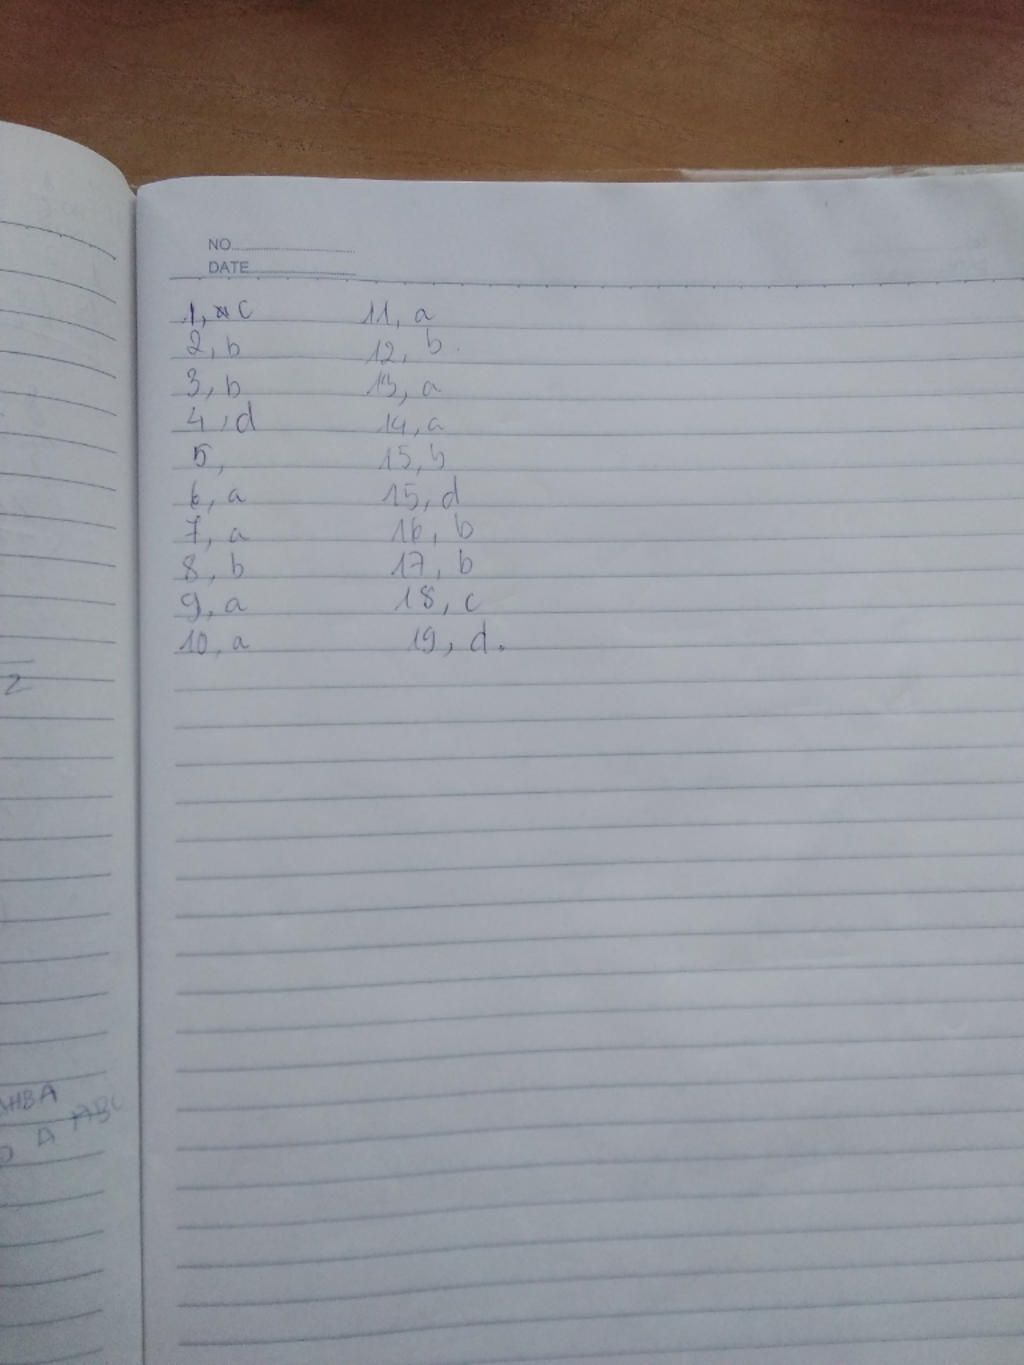 NO
DATE
1, c
2, b
3, b
4, d
5,
6, a
7, a
8, b
9, a
10, a
11, a
12, b.
13, a
14, a
15, b
15, d
16, b
17, b
18, c
19, d.
2